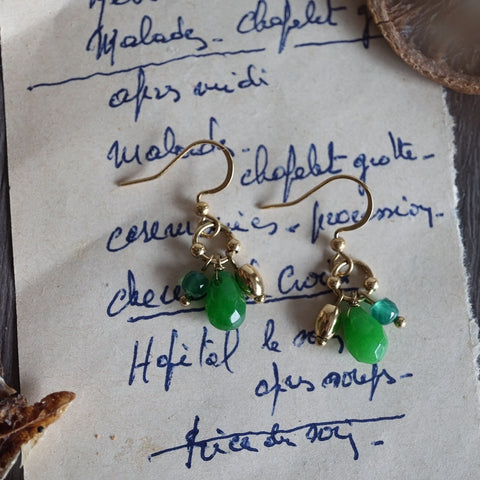 Malades - chapelet
après midi
Malades - chapelet grotte -
ceremonies - procession -
chemin Croix
Hôpital le soir
après soupe -
Prière du soir -